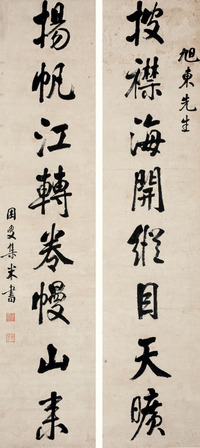 旭東先生
披襟海開縱目天曠
揚帆江轉卷幔山来
集米書